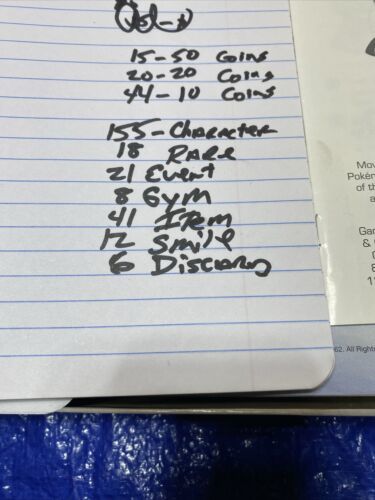 15-50 Coins
20-20 Coins
44-10 Coins
155-Character
18 Rare
21 Event
8 Gym
41 Item
12 Smile
6 Discovery
Mov
Pokén
of th
a
Gar
&
62. All Right